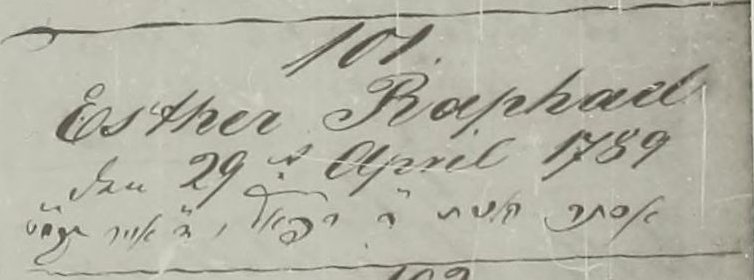 101.
Esther Raphael
den 29t April 1789
אסתר אשת רפאל אייר תקמט